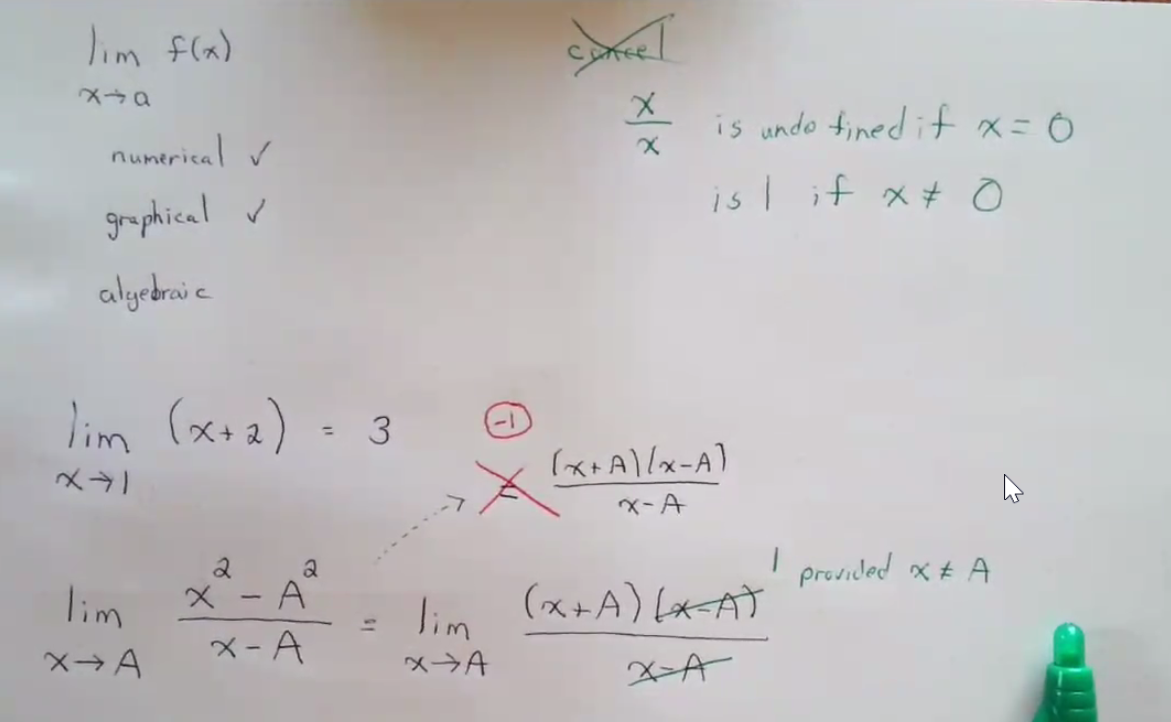 lim f(x)
x→a
numerical ✓
graphical ✓
algebraic
cancel
x/x is undefined if x = 0
is 1 if x ≠ 0
lim (x+2) = 3
x→1
-1
= (x+A)(x-A)/(x-A)
lim (x² - A²)/(x - A) = lim (x+A)(x-A)/(x-A) 1 provided x ≠ A
x→A x→A